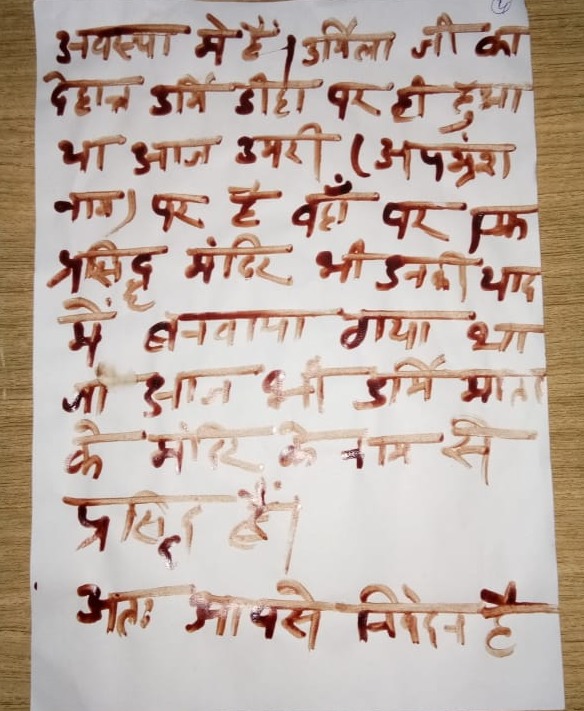 अवस्था में है। उर्मिला जी का
देहान्त उर्मि डीहा पर ही हुआ
था आज उमरी (अपभ्रंश
नाम) पर है वहाँ पर एक
प्रसिद्ध मंदिर भी उनकी याद
में बनवाया गया था
जो आज भी उर्मि माता
के मंदिर के नाम से
प्रसिद्ध हैं।
अतः आपसे निवेदन है